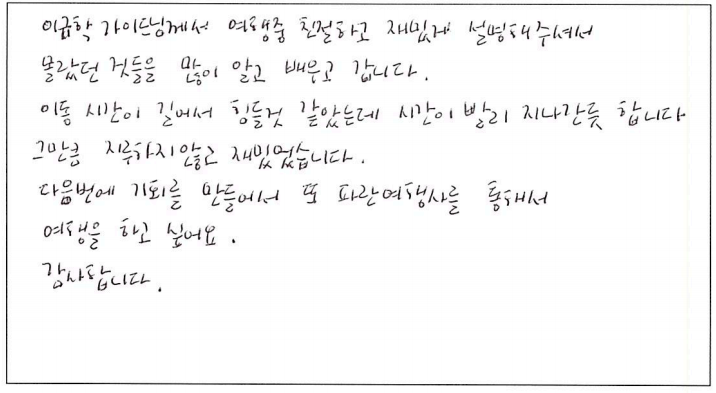 이금학 가이드님께서 여행중 친절하고 재밌게 설명해주셔서
몰랐던 것들을 많이 알고 배우고 갑니다.
이동 시간이 길어서 힘들것 같았는데 시간이 빨리 지나간듯 합니다
그만큼 지루하지않고 재밌었습니다.
다음번에 기회를 만들어서 또 파란여행사를 통해서
여행을 하고 싶어요.
감사합니다.